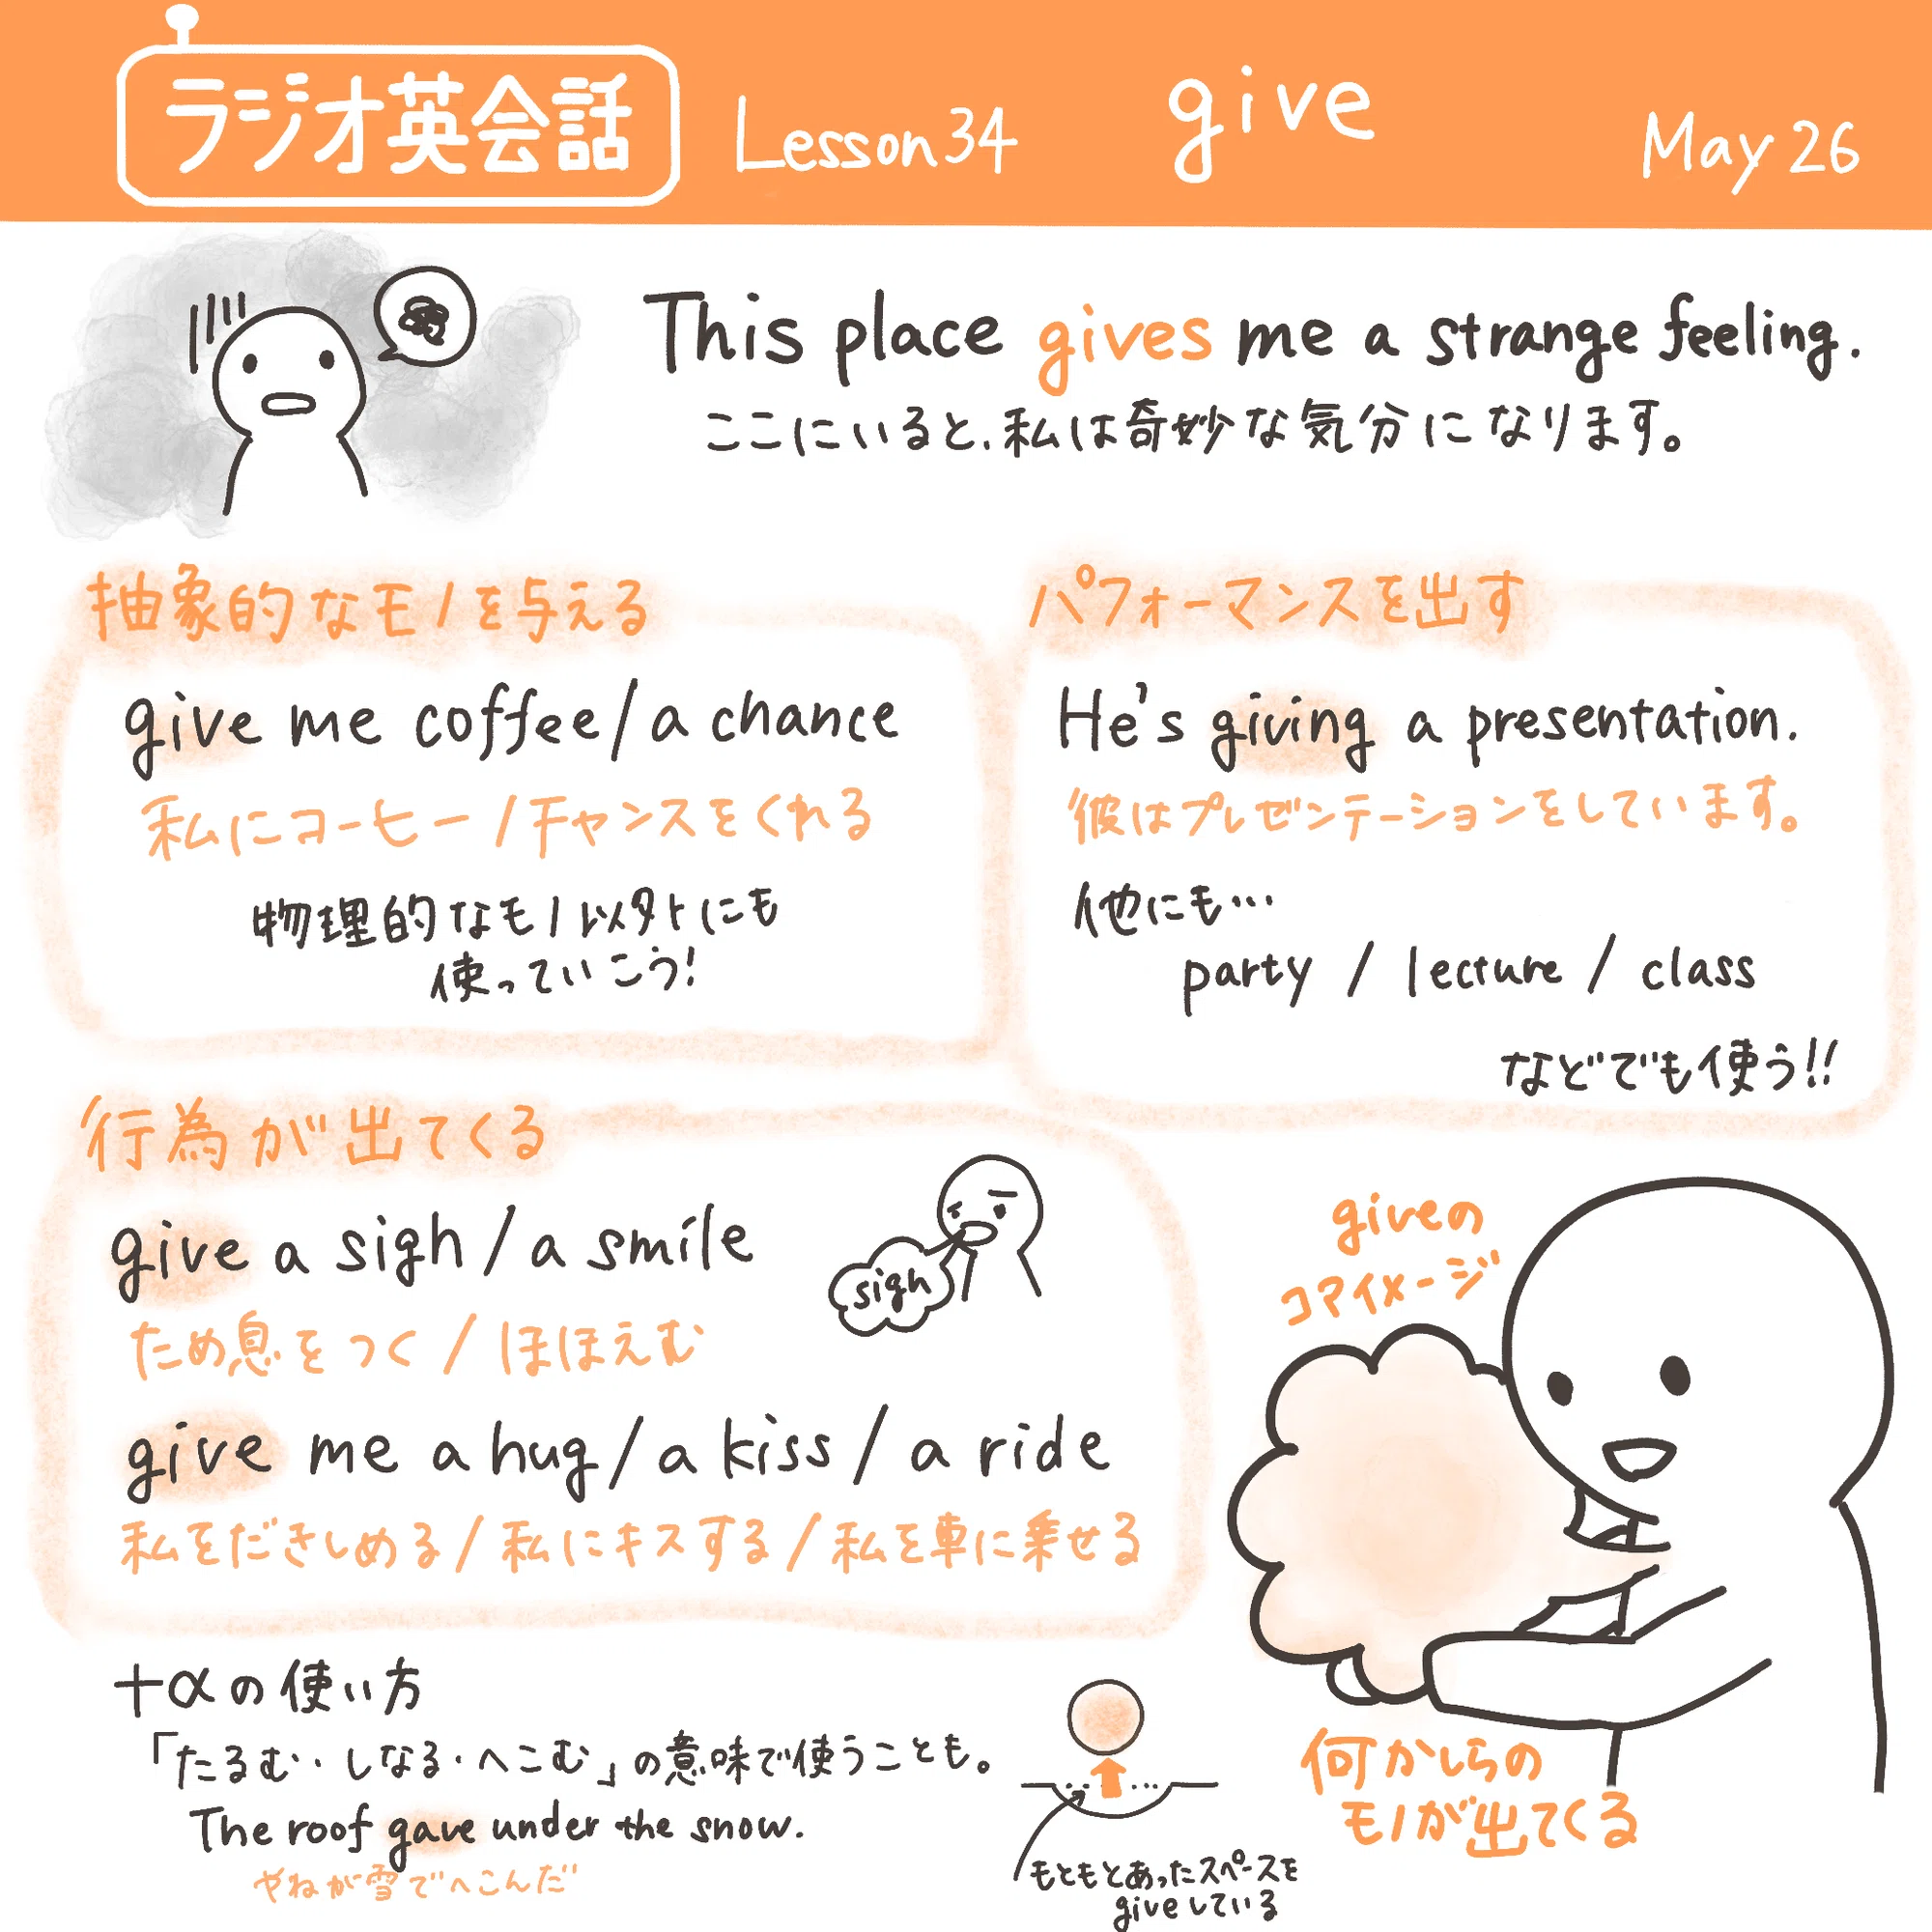 ラジオ英会話 Lesson34 give May 26
This place gives me a strange feeling.
ここにいると、私は奇妙な気分になります。
抽象的なモノを与える
give me coffee / a chance
私にコーヒー / チャンスをくれる
物理的なモノ以外にも
使っていこう!
パフォーマンスを出す
He's giving a presentation.
彼はプレゼンテーションをしています。
他にも…
party / lecture / class
などでも使う!!
行為が出てくる
give a sigh / a smile
sigh
ため息をつく / ほほえむ
give me a hug / a kiss / a ride
私をだきしめる / 私にキスする / 私を車に乗せる
giveの
コアイメージ
何かしらの
モノが出てくる
+αの使い方
「たるむ・しなる・へこむ」の意味で使うことも。
The roof gave under the snow.
やねが雪でへこんだ
もともとあったスペースを
giveしている